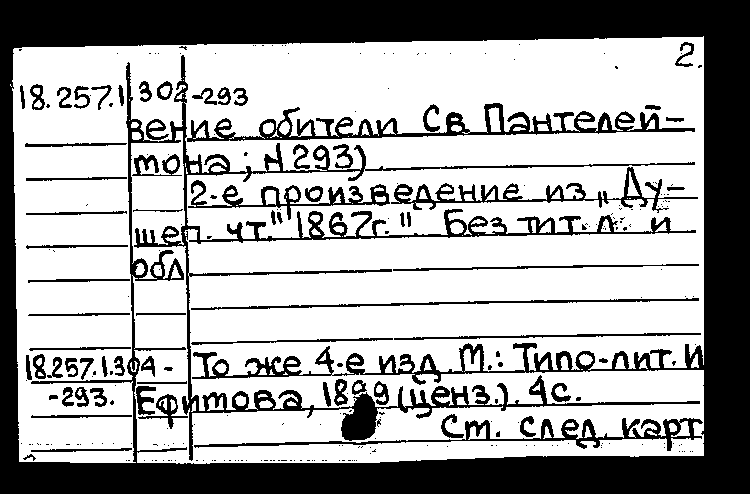 2.
18.257.1.302-293
вение обители Св Пантелей-
мона; N 293)
2-е произведение из „Ду-
шеп. чт." 1867г.". Без тит. л. и
обл
18.257.1.304- То же 4-е изд. М.: Типо-лит. И
-293. Ефимова, 1899 (ценз.). 4с.
См. след. карт.